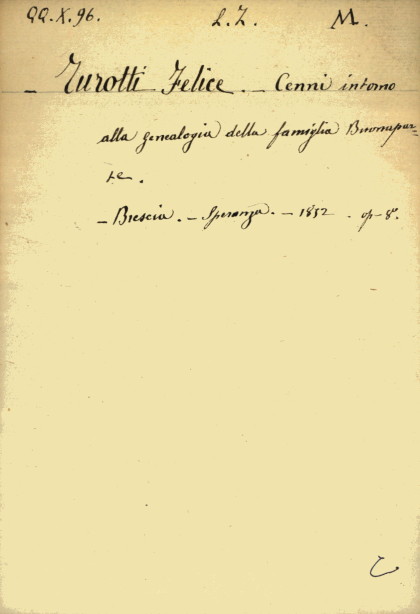 QQ.X.96. L.Z. M.
- Turotti Felice. - Cenni intorno
alla genealogia della famiglia Buonapar=
te.
- Brescia. - Speranza. - 1852. op-8°.